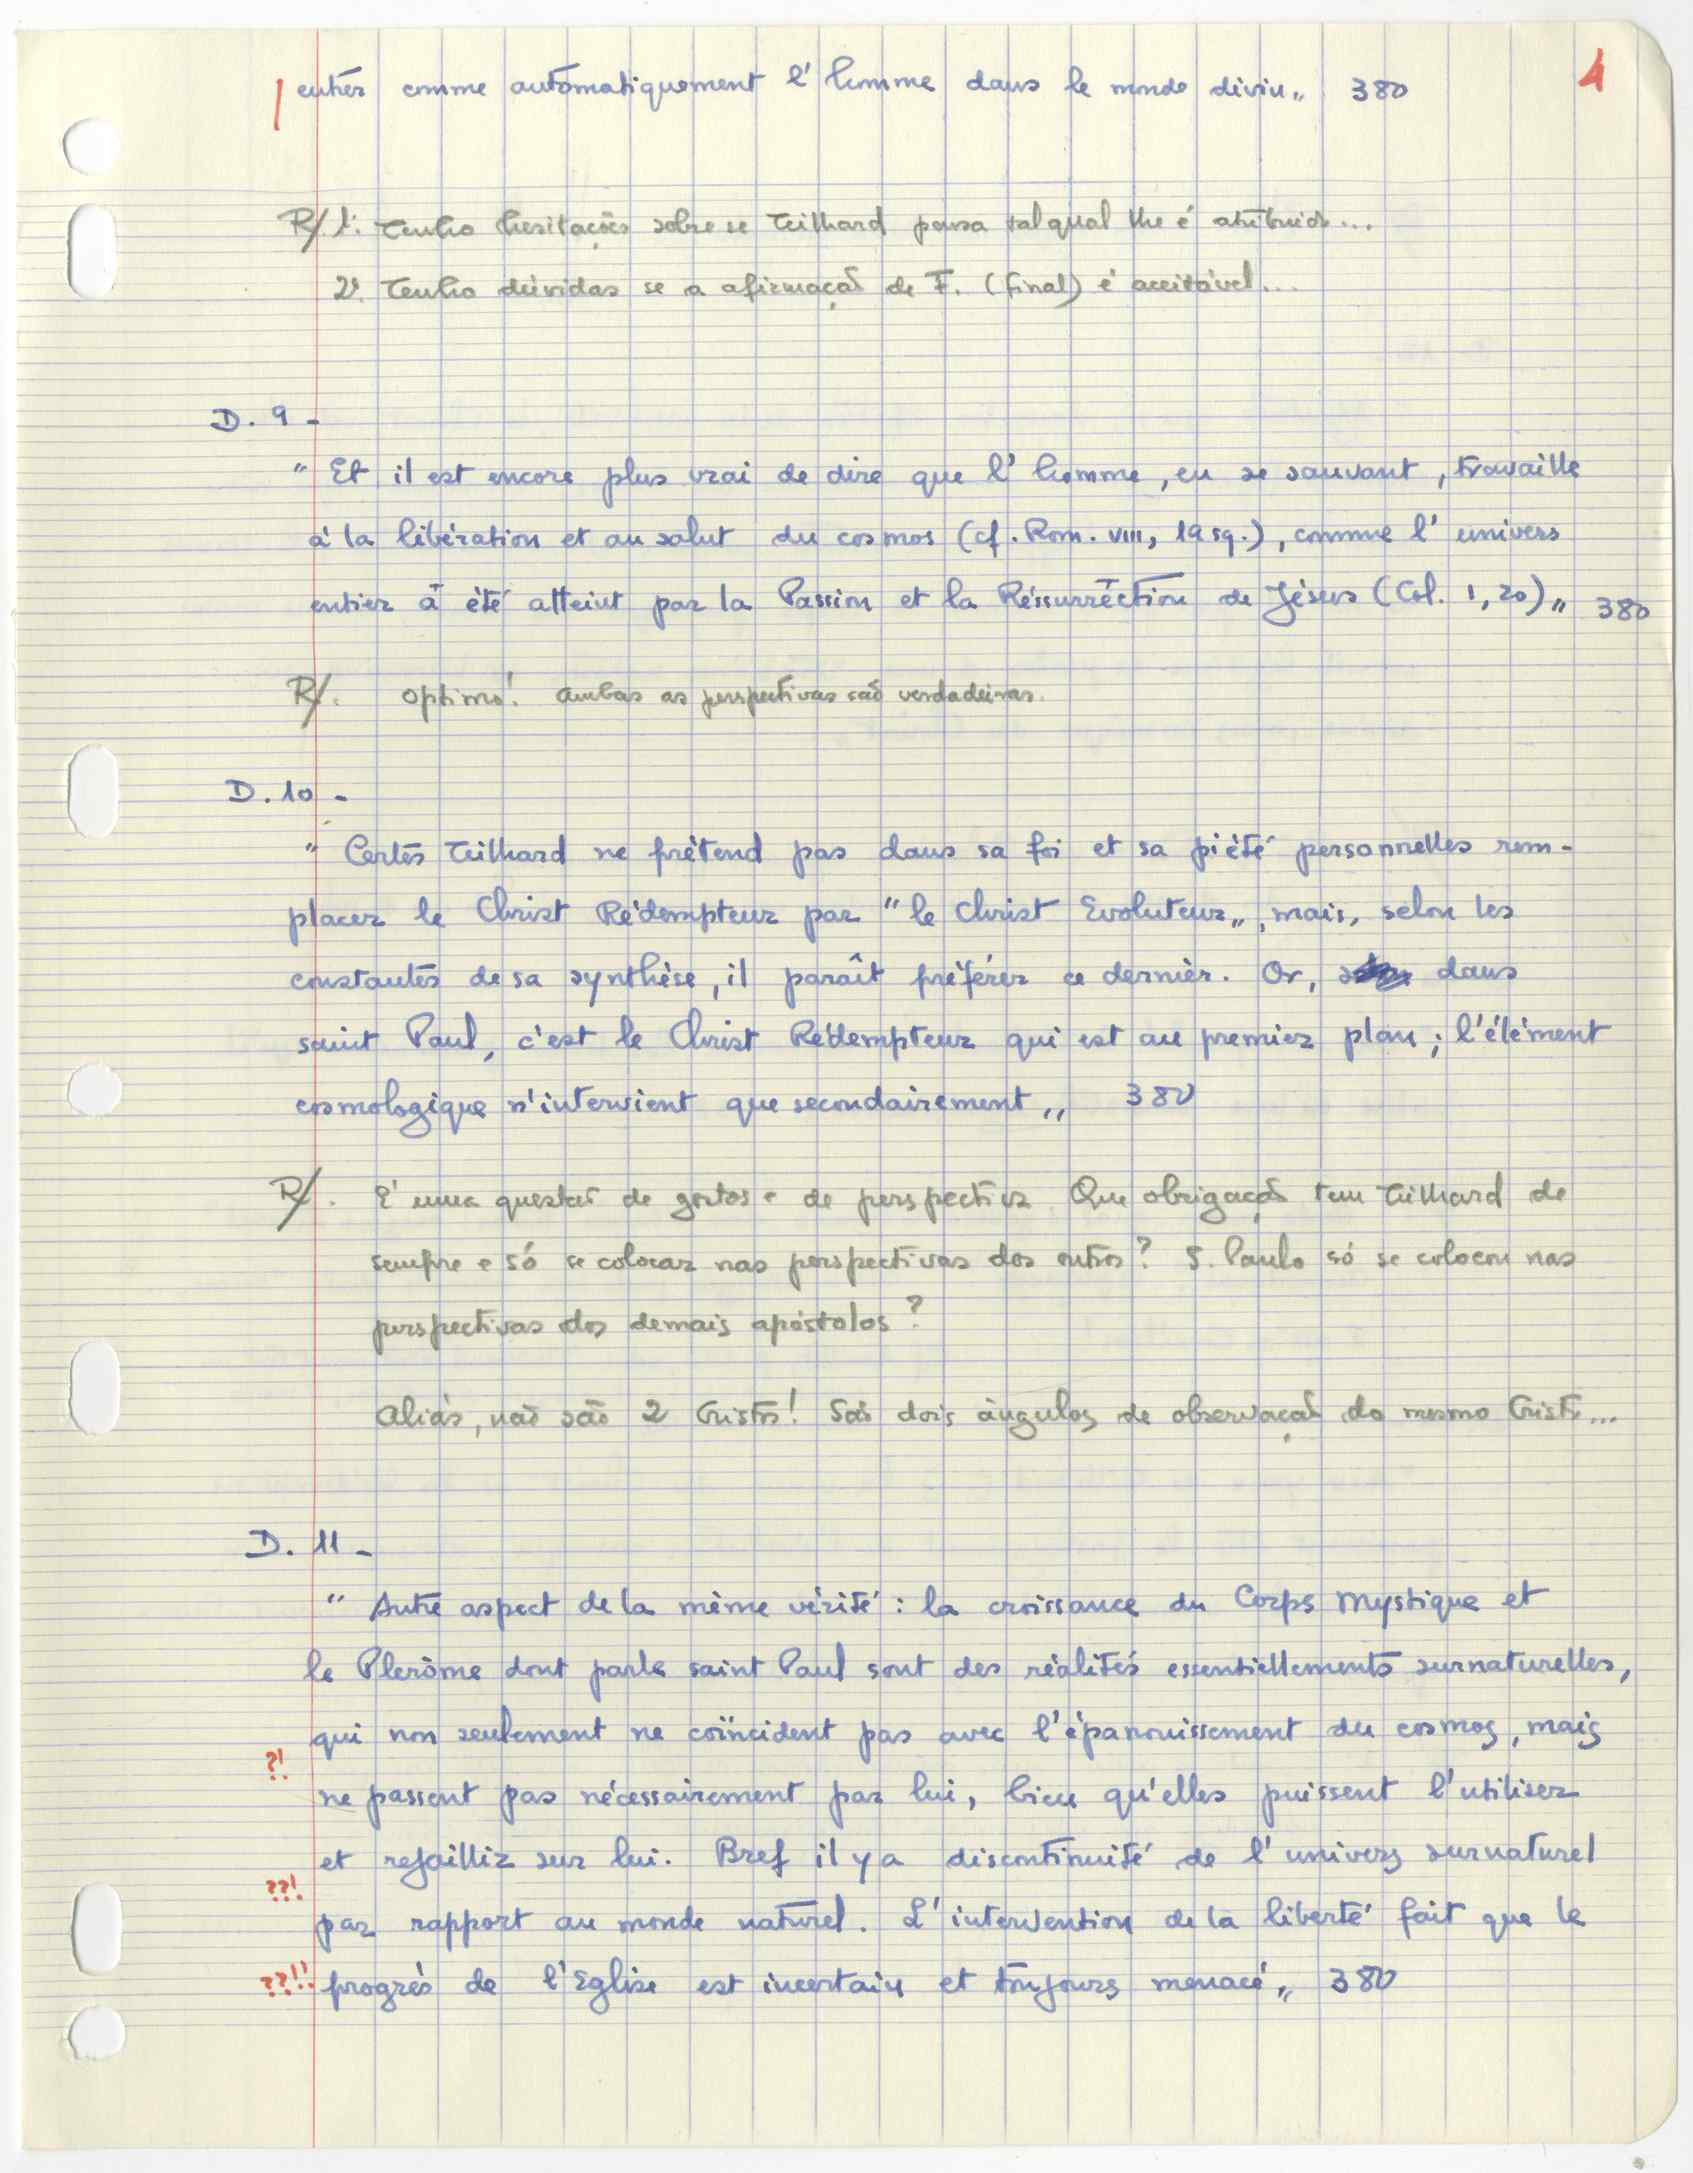 4
entrer comme automatiquement l'homme dans le monde divin„ 380
R/. 1º. Tenho hesitações sobre se Teilhard pensa tal qual lhe é atribuido...
2º. Tenho dúvidas se a afirmação de F. (final) é aceitável...
D. 9 -
" Et il est encore plus vrai de dire que l'homme, en se sauvant, travaille
à la libération et au salut du cosmos (cf. Rom. VIII, 19 sq.), comme l'univers
entier a été atteint par la Passion et la Réssurrection de Jésus (Col. 1, 20)„ 380
R/. Optimo! Ambas as perspectivas são verdadeiras.
D. 10 -
" Certes Teilhard ne prétend pas dans sa foi et sa piété personnelles rem-
placer le Christ Rédempteur par "le Christ Evoluteur„, mais, selon les
constantes de sa synthèse, il paraît préférer ce dernier. Or, dans
saint Paul, c'est le Christ Rédempteur qui est au premier plan ; l'élément
cosmologique n'intervient que secondairement„ 380
R/. E' uma questão de gostos e de perspectiva. Que obrigação tem Teilhard de
sempre e só se colocar nas perspectivas dos outros? S. Paulo só se colocou nas
perspectivas dos demais apóstolos?
Aliás, não são 2 Cristos! São dois ângulos de observação do mesmo Cristo...
D. 11 -
" Autre aspect de la même vérité : la croissance du Corps Mystique et
le Plerôme dont parle saint Paul sont des réalités essentiellements surnaturelles,
qui non seulement ne coïncident pas avec l'épanouissement du cosmos, mais
?!
ne passent pas nécessairement par lui, bien qu'elles puissent l'utiliser
et rejaillir sur lui. Bref il y a discontinuité de l'univers surnaturel
??!
par rapport au monde naturel. L'intervention de la liberté fait que le
??!! progrès de l'Eglise est incertain et toujours menacé„ 380